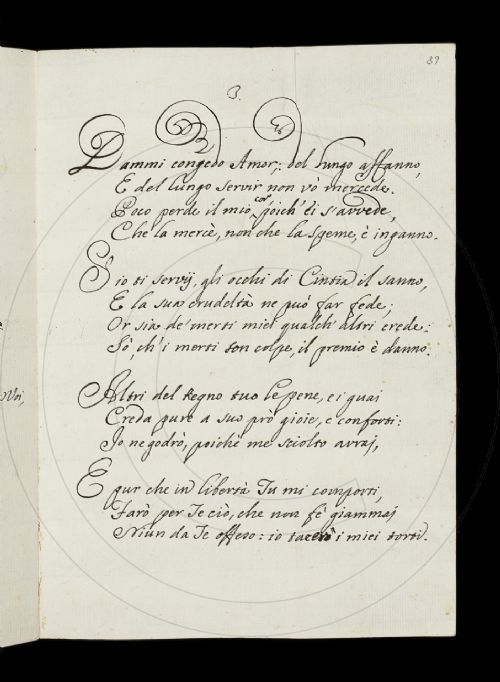 89
3.
Dammi congedo Amor; del lungo affanno,
E del lungo servir non vò mercede.
Poco perde il mio cor, poich' ei s'avvede,
Che la mercè, non che la speme, è inganno.
S'io ti servij, gli occhi di Cintia il sanno,
E la sua crudeltà ne può far fede;
Or sia de' merti miei qualch' altri erede:
Sò, ch' i merti son colpe, il premio è danno.
Altri del Regno tuo le pene, e i guai
Creda pure a suo prò gioie, e conforti:
Io ne godrò, poichè me sciolto avrai,
E pur che in libertà Tu mi comporti,
Farò per Te ciò, che non fè giammai
Niun da Te offeso: io tacerò i miei torti.
Noi,